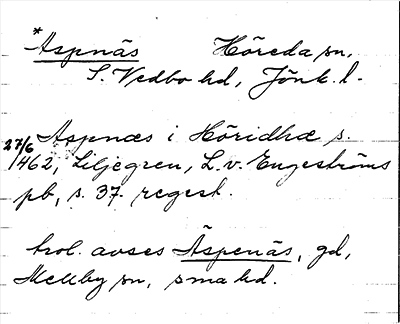 *Aspnäs Höreda sn,
S. Vedbo hd, Jönk. l.
Aspnæs i Höridhæ s.
27/6
1462, Liljegren, L. v. Engeströms
pb, s. 37. regest.
trol. avses Äspenäs, gd,
Mellby sn, samma hd.